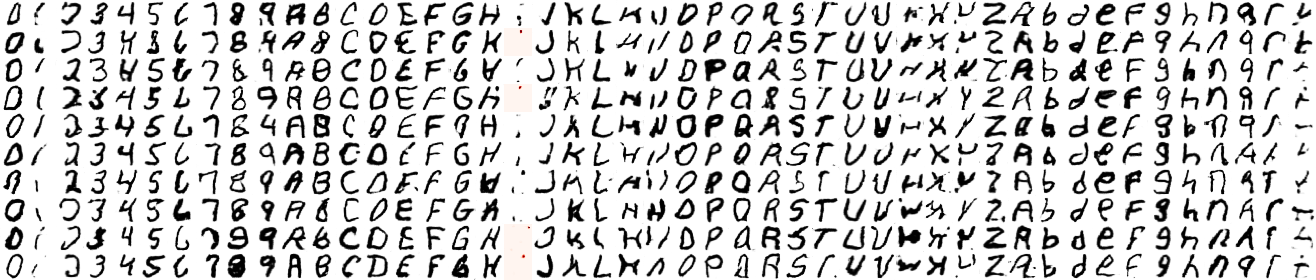 0 1 2 3 4 5 6 7 8 9 A B C D E F G H I J K L M N O P Q R S T U V W X Y Z A b d e F g h n q r t
0 1 2 3 4 5 6 7 8 9 A B C D E F G H I J K L M N O P Q R S T U V W X Y Z A b d e F g h n q r t
0 1 2 3 4 5 6 7 8 9 A B C D E F G H I J K L M N O P Q R S T U V W X Y Z A b d e F g h n q r t
0 1 2 3 4 5 6 7 8 9 A B C D E F G H I J K L M N O P Q R S T U V W X Y Z A b d e F g h n q r t
0 1 2 3 4 5 6 7 8 9 A B C D E F G H I J K L M N O P Q R S T U V W X Y Z a b d e F g h n q r t
0 1 2 3 4 5 6 7 8 9 A B C D E F G H I J K L M N O P Q R S T U V W X Y Z a b d e F g h n q r t
0 1 2 3 4 5 6 7 8 9 A B C D E F G H I J K L M N O P Q R S T U V W X Y Z A b d e F g h n q r t
0 1 2 3 4 5 6 7 8 9 A B C D E F G H I J K L M N O P Q R S T U V W X Y Z A b d e F g h n q r t
0 1 2 3 4 5 6 7 8 9 A B C D E F G H I J K L M N O P Q R S T U V W X Y Z a b d e F g h n q r t
0 1 2 3 4 5 6 7 8 9 A B C D E F G H I J K L M N O P Q R S T U V W X Y Z A b d e F g h n q r t